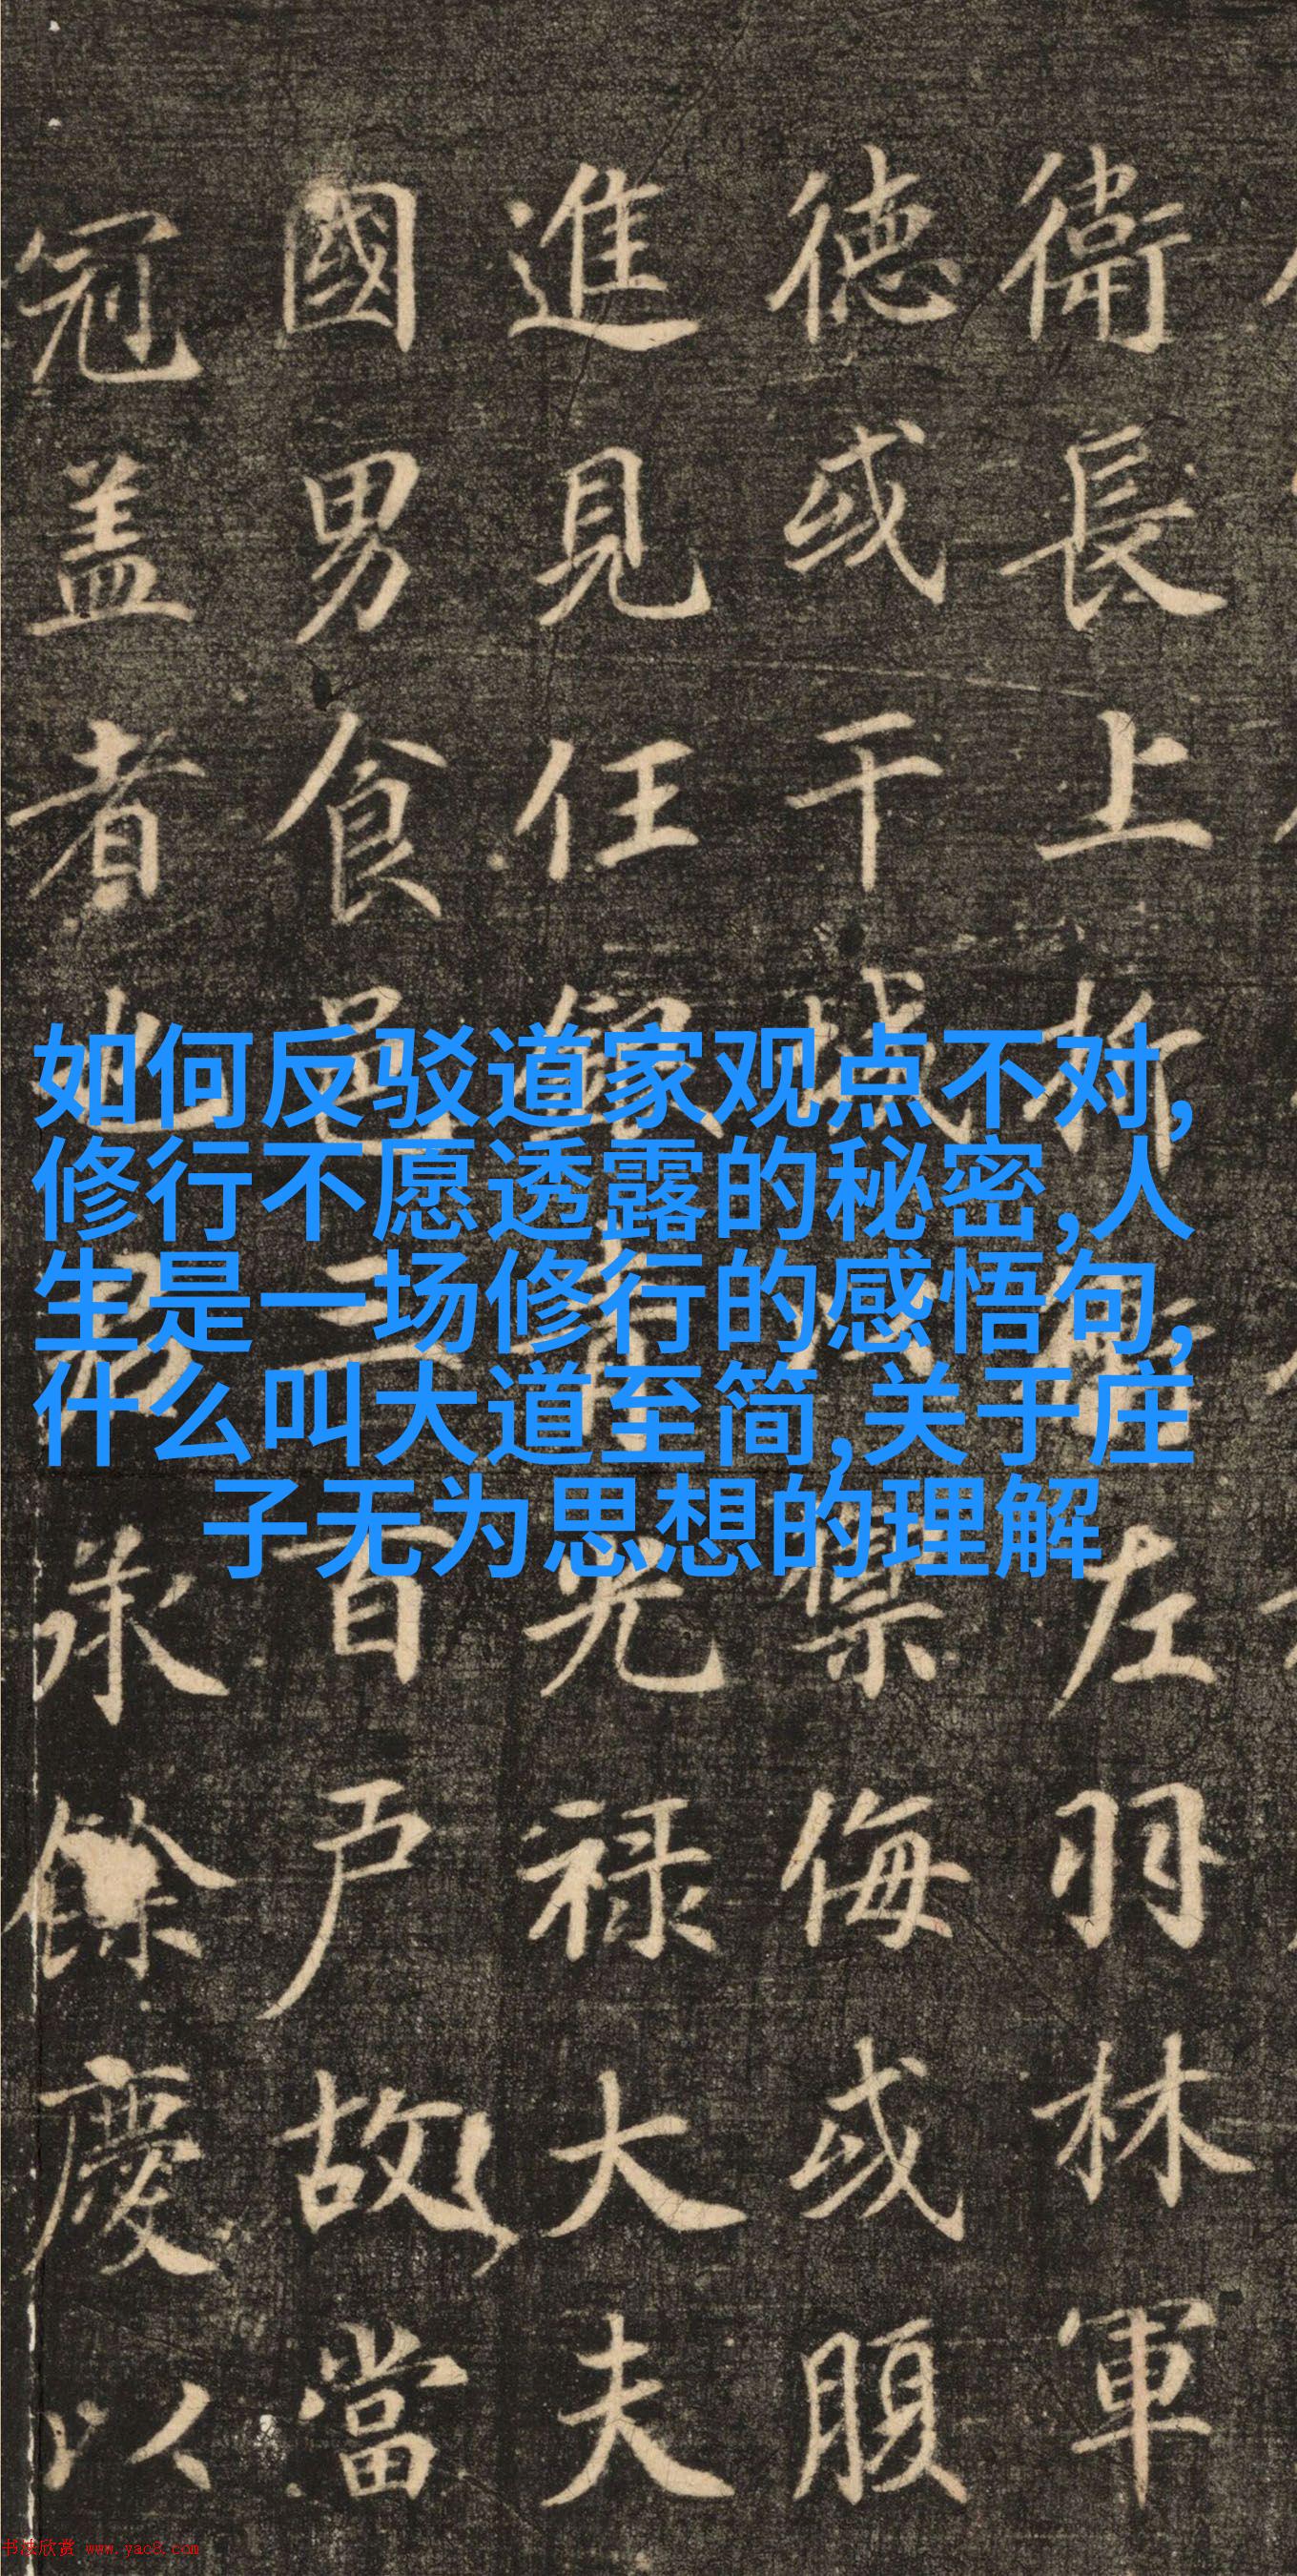 衛長上折衝左羽林軍
德或干城禦侮或腹
進見任銀青光祿大夫
國男食邑三百戶故當
冠盖者也承餘慶以
如何反驳道家观点不对,
修行不愿透露的秘密,人
生是一场修行的感悟句,
什么叫大道至简,关于庄
子无为思想的理解
书法欣赏 www.yac8.com